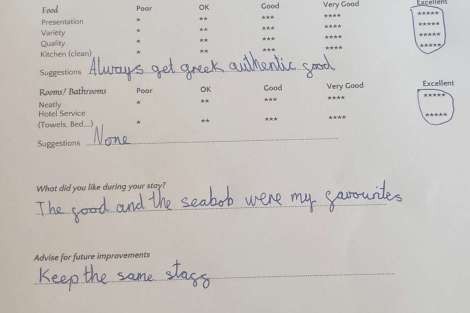 Food Poor OK Good Very Good Excellent
Presentation * ** *** **** *****
Variety * ** *** **** *****
Quality * ** *** **** *****
Kitchen (clean) * ** *** **** *****
Suggestions Always get greek authentic good
Rooms/ Bathrooms Poor OK Good Very Good Excellent
Neatly * ** *** **** *****
Hotel Service
(Towels, Bed...) * ** *** **** *****
Suggestions None
What did you like during your stay?
The good and the seabob were my gavourites
Advise for future improvements
Keep the same stagg